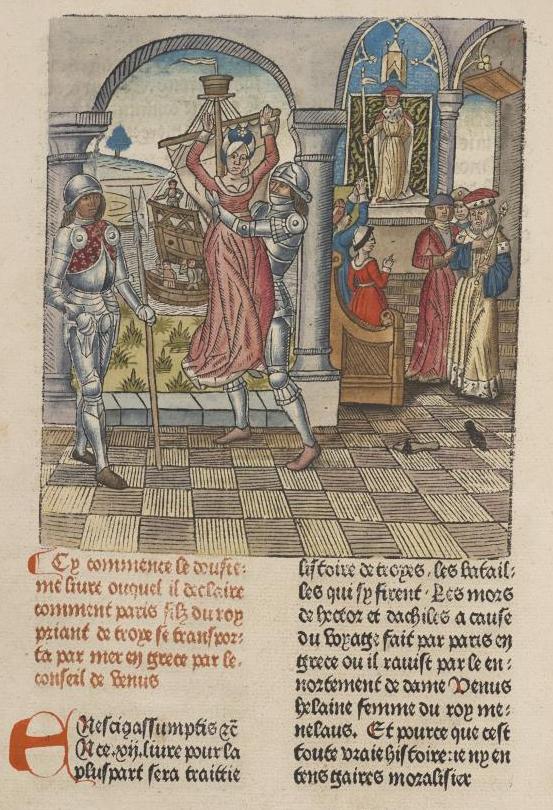 Cy commence le dousie:
me liure ouquel il declaire
comment paris filz du roy
priant de troye se transpor:
ta par mer en grece par le.
conseil de Venus
NEscigassumptis ⁊c̄
En ce.xij.liure pour la
pluspart sera traittie
listoire de troyes. les batail:
les qui sy firent. Les mors
de hector et dachiles a cause
du voyage fait par paris en
grece ou il rauist par le en:
nortement de dame Venus
helaine femme du roy me:
nelaus. Et pource que cest
toute vraie histoire: ie ny en
tens gaires moralisier